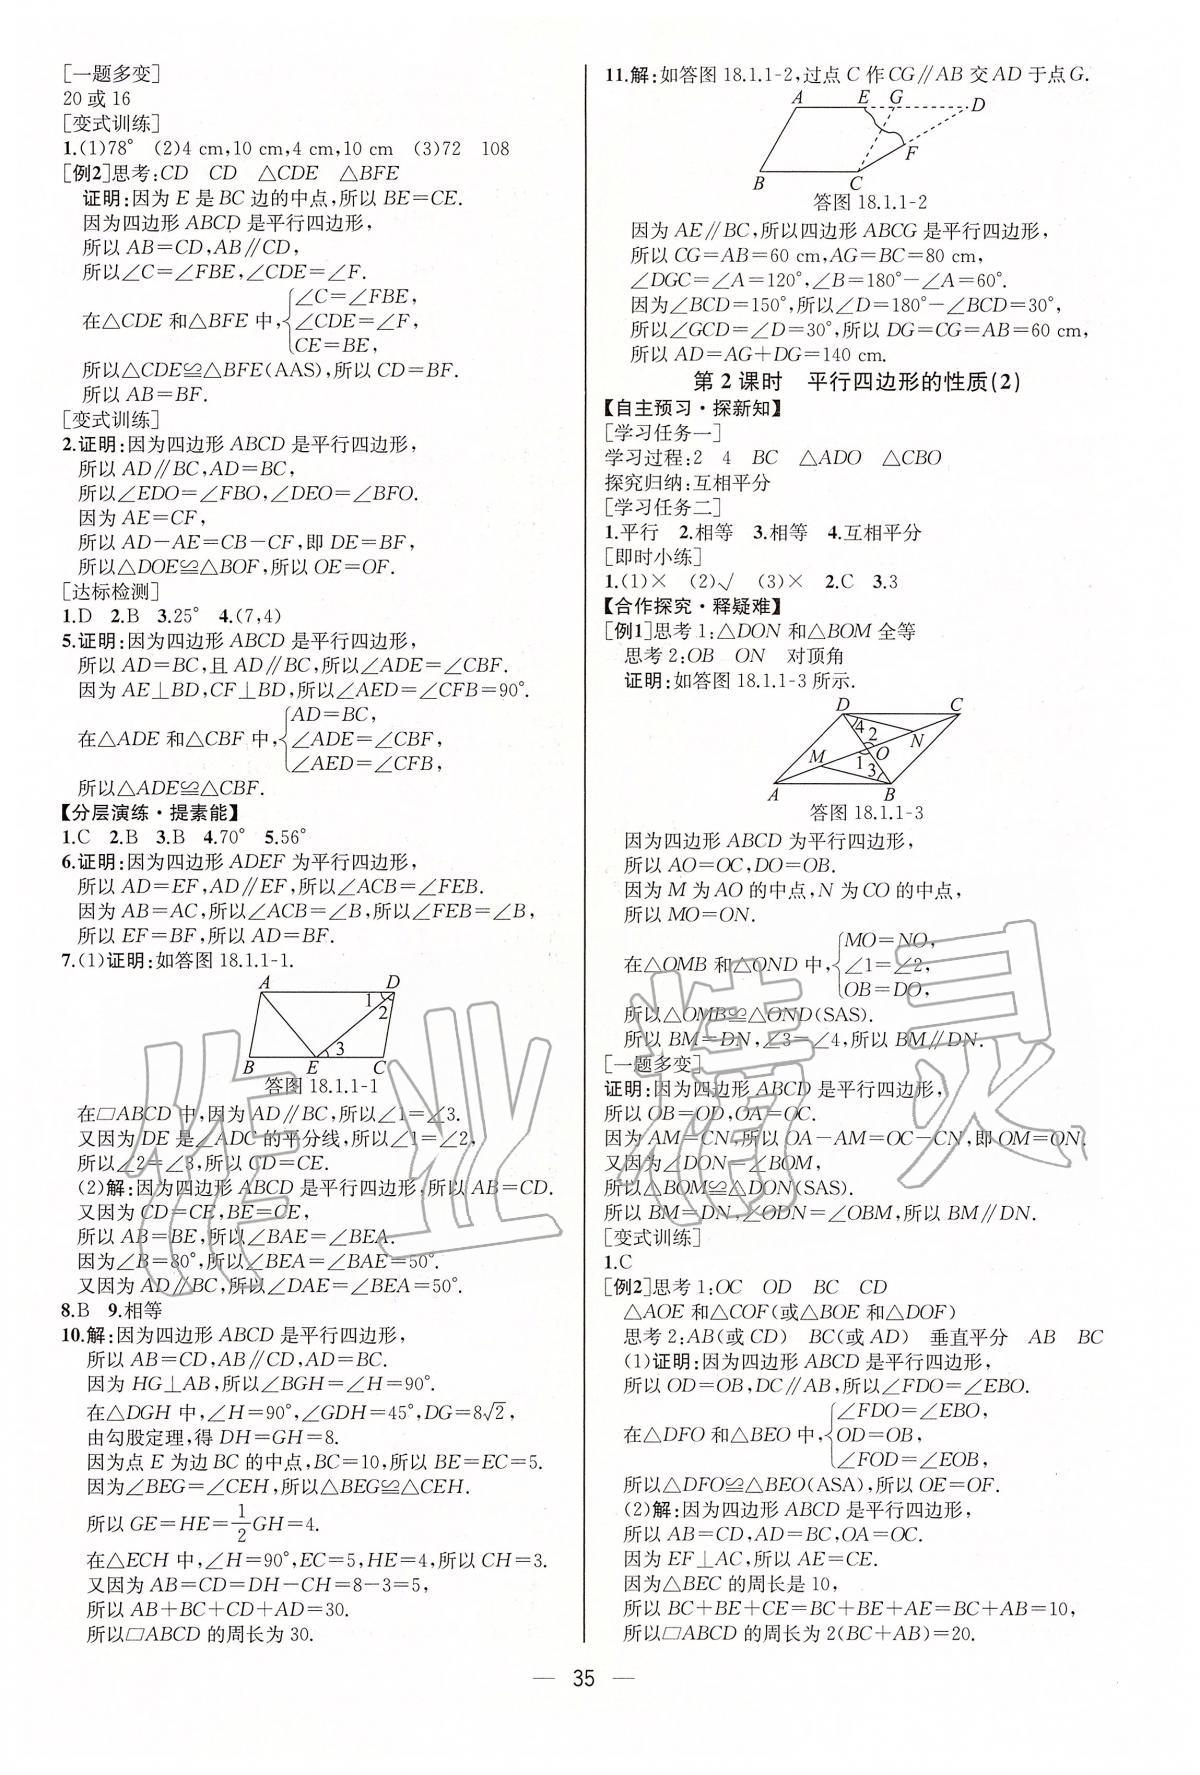 [一题多变]
20或16
[变式训练]
1.(1)78° (2)4 cm,10 cm,4 cm,10 cm (3)72 108
[例2]思考:CD CD △CDE △BFE
证明:因为E是BC边的中点,所以BE=CE.
因为四边形ABCD是平行四边形,
所以AB=CD,AB∥CD,
所以∠C=∠FBE,∠CDE=∠F.
在△CDE和△BFE中,{∠C=∠FBE,
∠CDE=∠F,
CE=BE,
所以△CDE≌△BFE(AAS),所以CD=BF.
所以AB=BF.
[变式训练]
2.证明:因为四边形ABCD是平行四边形,
所以AD∥BC,AD=BC,
所以∠EDO=∠FBO,∠DEO=∠BFO.
因为AE=CF,
所以AD-AE=CB-CF,即DE=BF,
所以△DOE≌△BOF,所以OE=OF.
[达标检测]
1.D 2.B 3.25° 4.(7,4)
5.证明:因为四边形ABCD是平行四边形,
所以AD=BC,且AD∥BC,所以∠ADE=∠CBF.
因为AE⊥BD,CF⊥BD,所以∠AED=∠CFB=90°.
在△ADE和△CBF中,{AD=BC,
∠ADE=∠CBF,
∠AED=∠CFB,
所以△ADE≌△CBF.
【分层演练·提素能】
1.C 2.B 3.B 4.70° 5.56°
6.证明:因为四边形ADEF为平行四边形,
所以AD=EF,AD∥EF,所以∠ACB=∠FEB.
因为AB=AC,所以∠ACB=∠B,所以∠FEB=∠B,
所以EF=BF,所以AD=BF.
7.(1)证明:如答图18.1.1-1.
A D
1
2
3
B E C
答图18.1.1-1
在▱ABCD中,因为AD∥BC,所以∠1=∠3.
又因为DE是∠ADC的平分线,所以∠1=∠2,
所以∠2=∠3,所以CD=CE.
(2)解:因为四边形ABCD是平行四边形,所以AB=CD.
又因为CD=CE,BE=CE,
所以AB=BE,所以∠BAE=∠BEA.
因为∠B=80°,所以∠BEA=∠BAE=50°.
又因为AD∥BC,所以∠DAE=∠BEA=50°.
8.B 9.相等
10.解:因为四边形ABCD是平行四边形,
所以AB=CD,AB∥CD,AD=BC.
因为HG⊥AB,所以∠BGH=∠H=90°.
在△DGH中,∠H=90°,∠GDH=45°,DG=8√2,
由勾股定理,得DH=GH=8.
因为点E为边BC的中点,BC=10,所以BE=EC=5.
因为∠BEG=∠CEH,所以△BEG≌△CEH.
所以GE=HE=1/2GH=4.
在△ECH中,∠H=90°,EC=5,HE=4,所以CH=3.
又因为AB=CD=DH-CH=8-3=5,
所以AB+BC+CD+AD=30.
所以▱ABCD的周长为30.
11.解:如答图18.1.1-2,过点C作CG∥AB交AD于点G.
A E G D
F
B C
答图18.1.1-2
因为AE∥BC,所以四边形ABCG是平行四边形,
所以CG=AB=60 cm,AG=BC=80 cm,
∠DGC=∠A=120°,∠B=180°-∠A=60°.
因为∠BCD=150°,所以∠D=180°-∠BCD=30°,
所以∠GCD=∠D=30°,所以DG=CG=AB=60 cm,
所以AD=AG+DG=140 cm.
第2课时 平行四边形的性质(2)
【自主预习·探新知】
[学习任务一]
学习过程:2 4 BC △ADO △CBO
探究归纳:互相平分
[学习任务二]
1.平行 2.相等 3.相等 4.互相平分
[即时小练]
1.(1)× (2)√ (3)× 2.C 3.3
【合作探究·释疑难】
[例1]思考1:△DON和△BOM 全等
思考2:OB ON 对顶角
证明:如答图18.1.1-3所示.
D C
4 2 N
M 1 O
3
A B
答图18.1.1-3
因为四边形ABCD为平行四边形,
所以AO=OC,DO=OB.
因为M为AO的中点,N为CO的中点,
所以MO=ON.
在△OMB和△OND中,{MO=NO,
∠1=∠2,
OB=DO,
所以△OMB≌△OND(SAS).
所以BM=DN,∠3=∠4,所以BM∥DN.
[一题多变]
证明:因为四边形ABCD是平行四边形,
所以OB=OD,OA=OC.
因为AM=CN,所以OA-AM=OC-CN,即OM=ON.
又因为∠DON=∠BOM,
所以△BOM≌△DON(SAS).
所以BM=DN,∠ODN=∠OBM,所以BM∥DN.
[变式训练]
1.C
[例2]思考1:OC OD BC CD
△AOE和△COF(或△BOE和△DOF)
思考2:AB(或CD) BC(或AD) 垂直平分 AB BC
(1)证明:因为四边形ABCD是平行四边形,
所以OD=OB,DC∥AB,所以∠FDO=∠EBO.
在△DFO和△BEO中,{∠FDO=∠EBO,
OD=OB,
∠FOD=∠EOB,
所以△DFO≌△BEO(ASA),所以OE=OF.
(2)解:因为四边形ABCD是平行四边形,
所以AB=CD,AD=BC,OA=OC.
因为EF⊥AC,所以AE=CE.
因为△BEC的周长是10,
所以BC+BE+CE=BC+BE+AE=BC+AB=10,
所以▱ABCD的周长为2(BC+AB)=20.
— 35 —
作业精灵